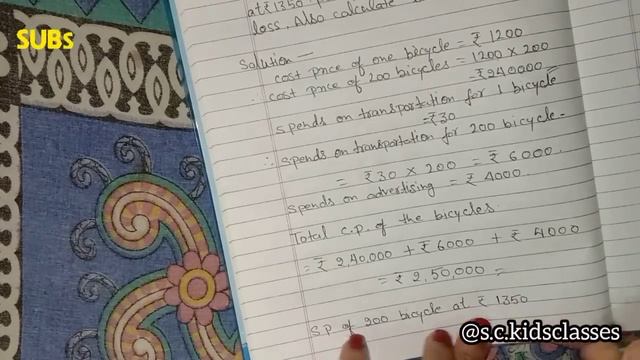 SUBs
at ₹1350
loss. Also calculate
Solution —
cost price of one bicycle = ₹ 1200
∴ cost price of 200 bicycles = 1200 × 200
= ₹240000
spends on transportation for 1 bicycle
= ₹30
∴ spends on transportation for 200 bicycle =
= ₹30 × 200 = ₹ 6000.
spends on advertising = ₹ 4000.
Total c.p. of the bicycles.
= ₹ 2,40,000 + ₹ 6000 + ₹ 4000
= ₹ 2,50,000 =
S.P of 200 bicycle at ₹ 1350
@s.c.kidsclasses